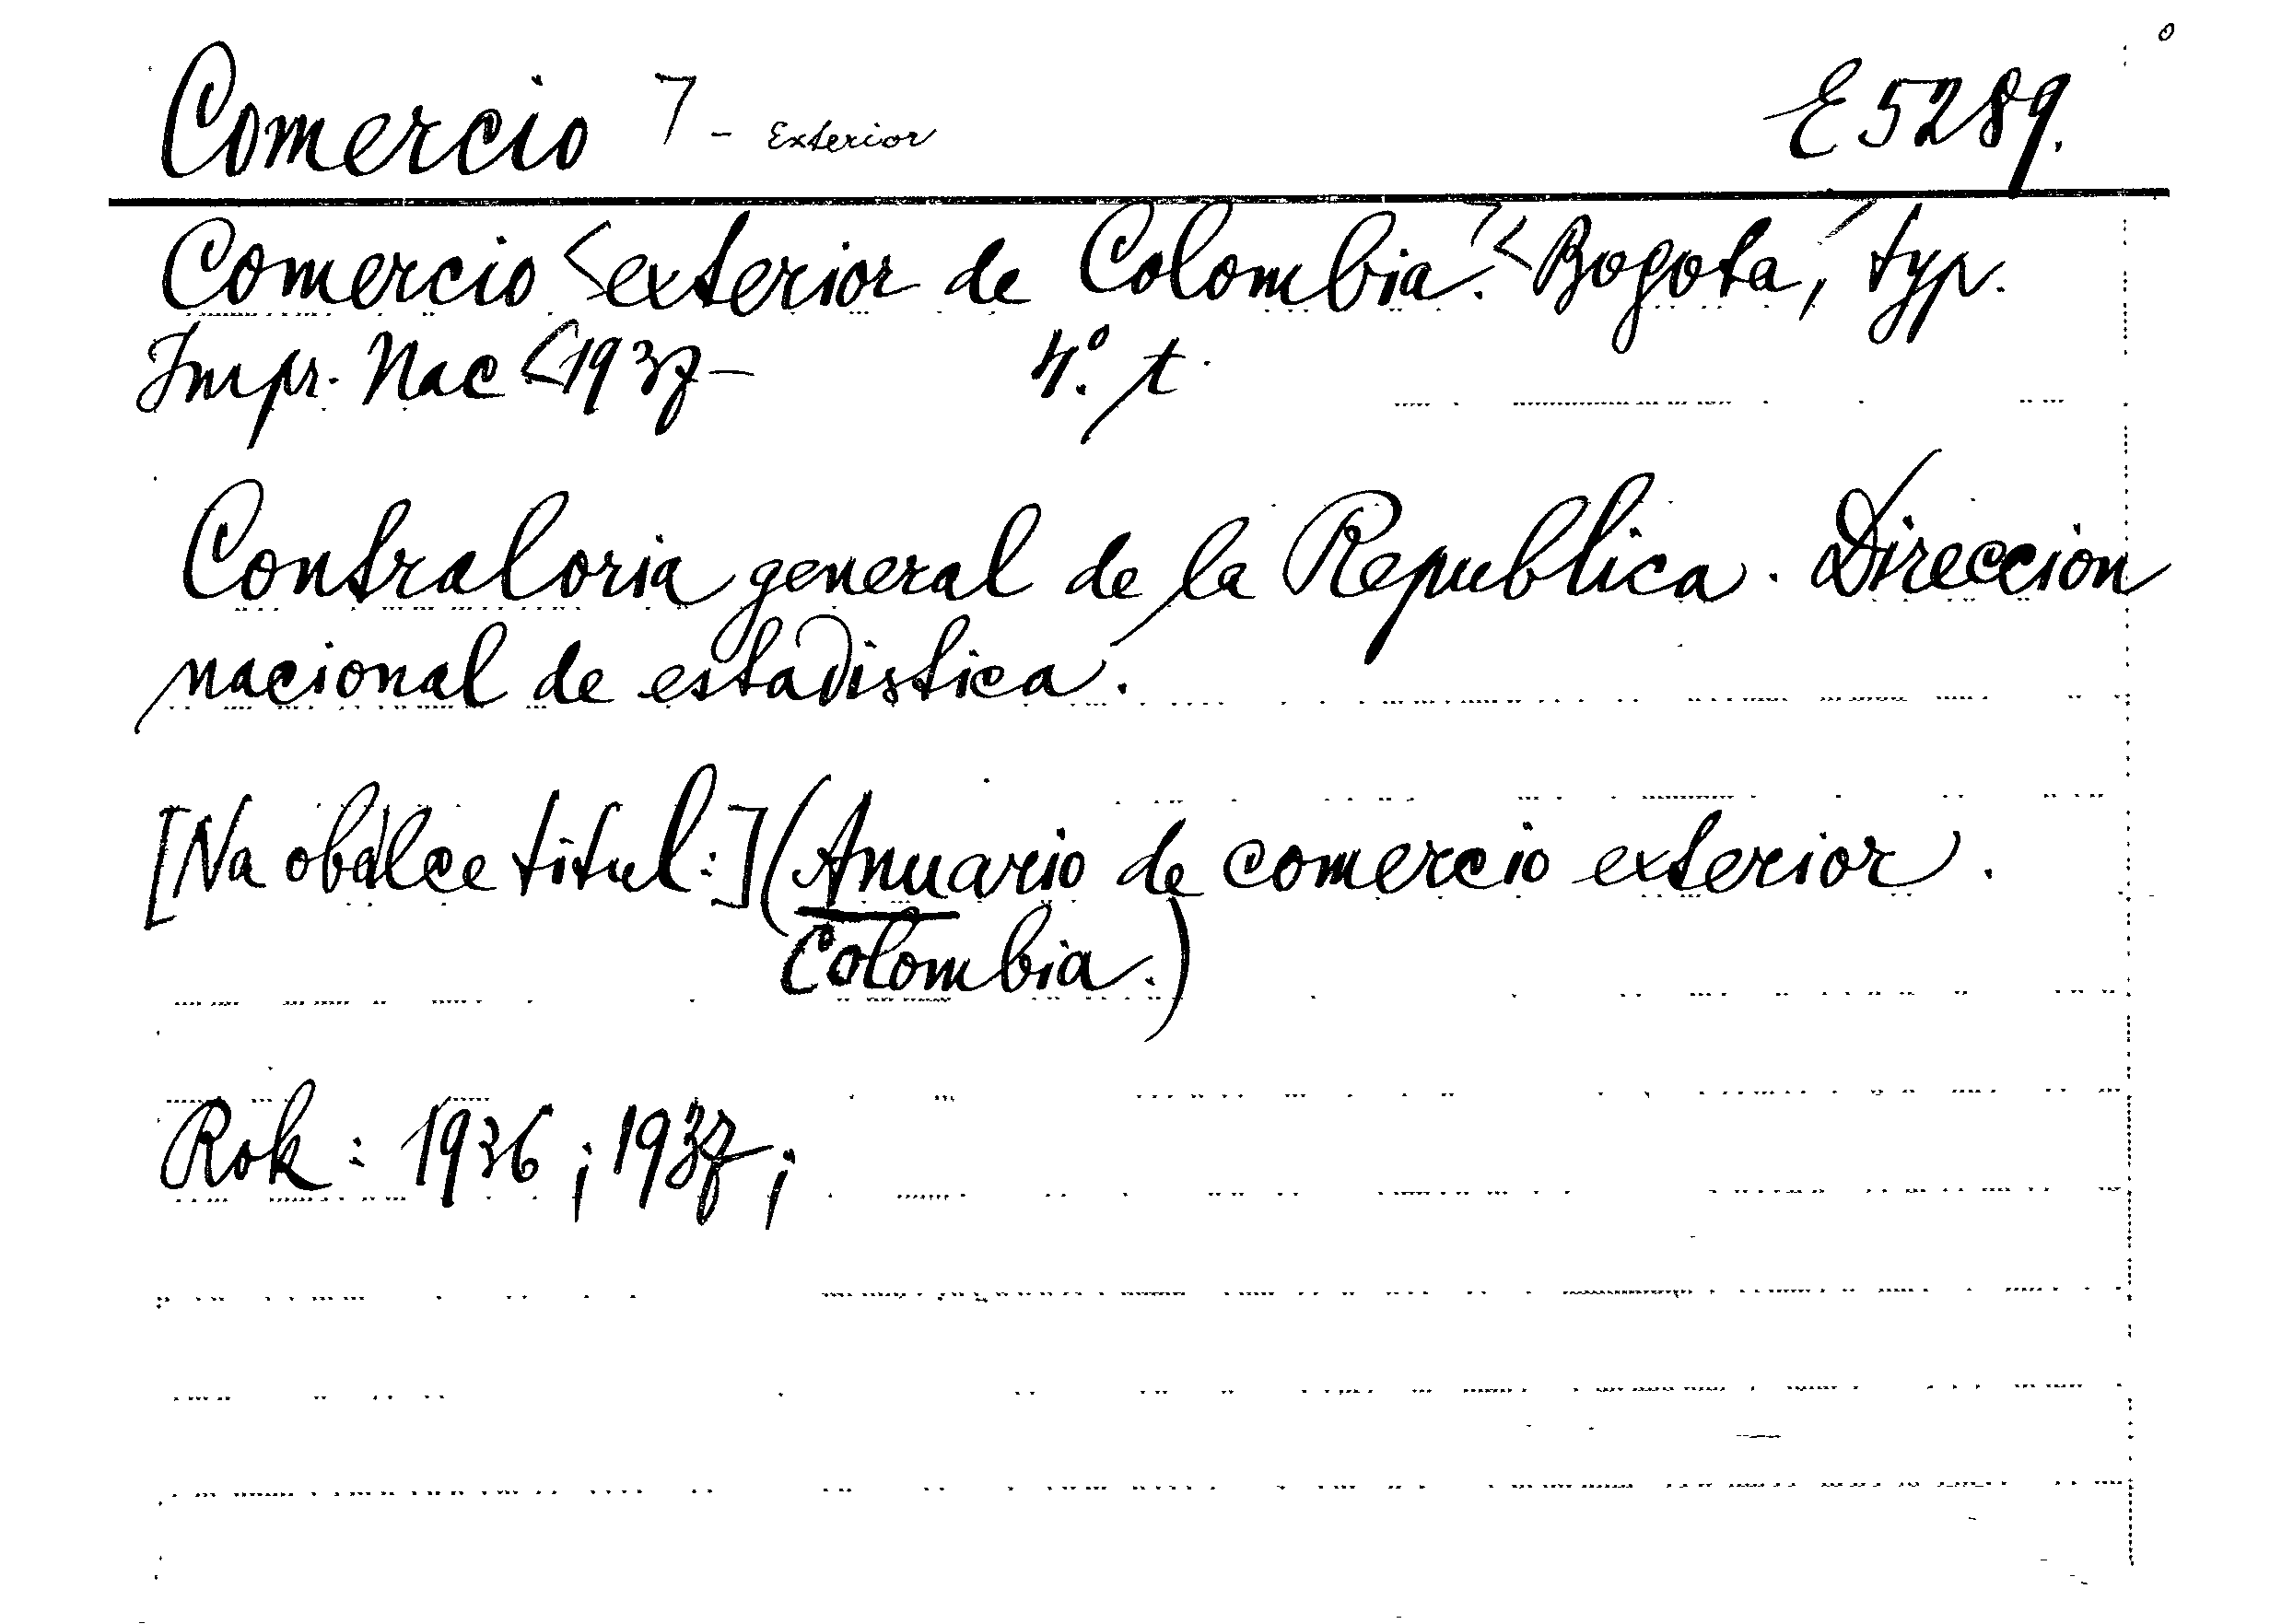 Comercio - Exterior E 5289.
Comercio exterior de Colombia. Bogota, typ.
Impr. Nac 1937- 4°. t.
Contraloria general de la Republica. Direccion
nacional de estadistica.
[Na obálce titul:] (Anuario de comercio exterior.
Colombia.)
Rok: 1936; 1937;